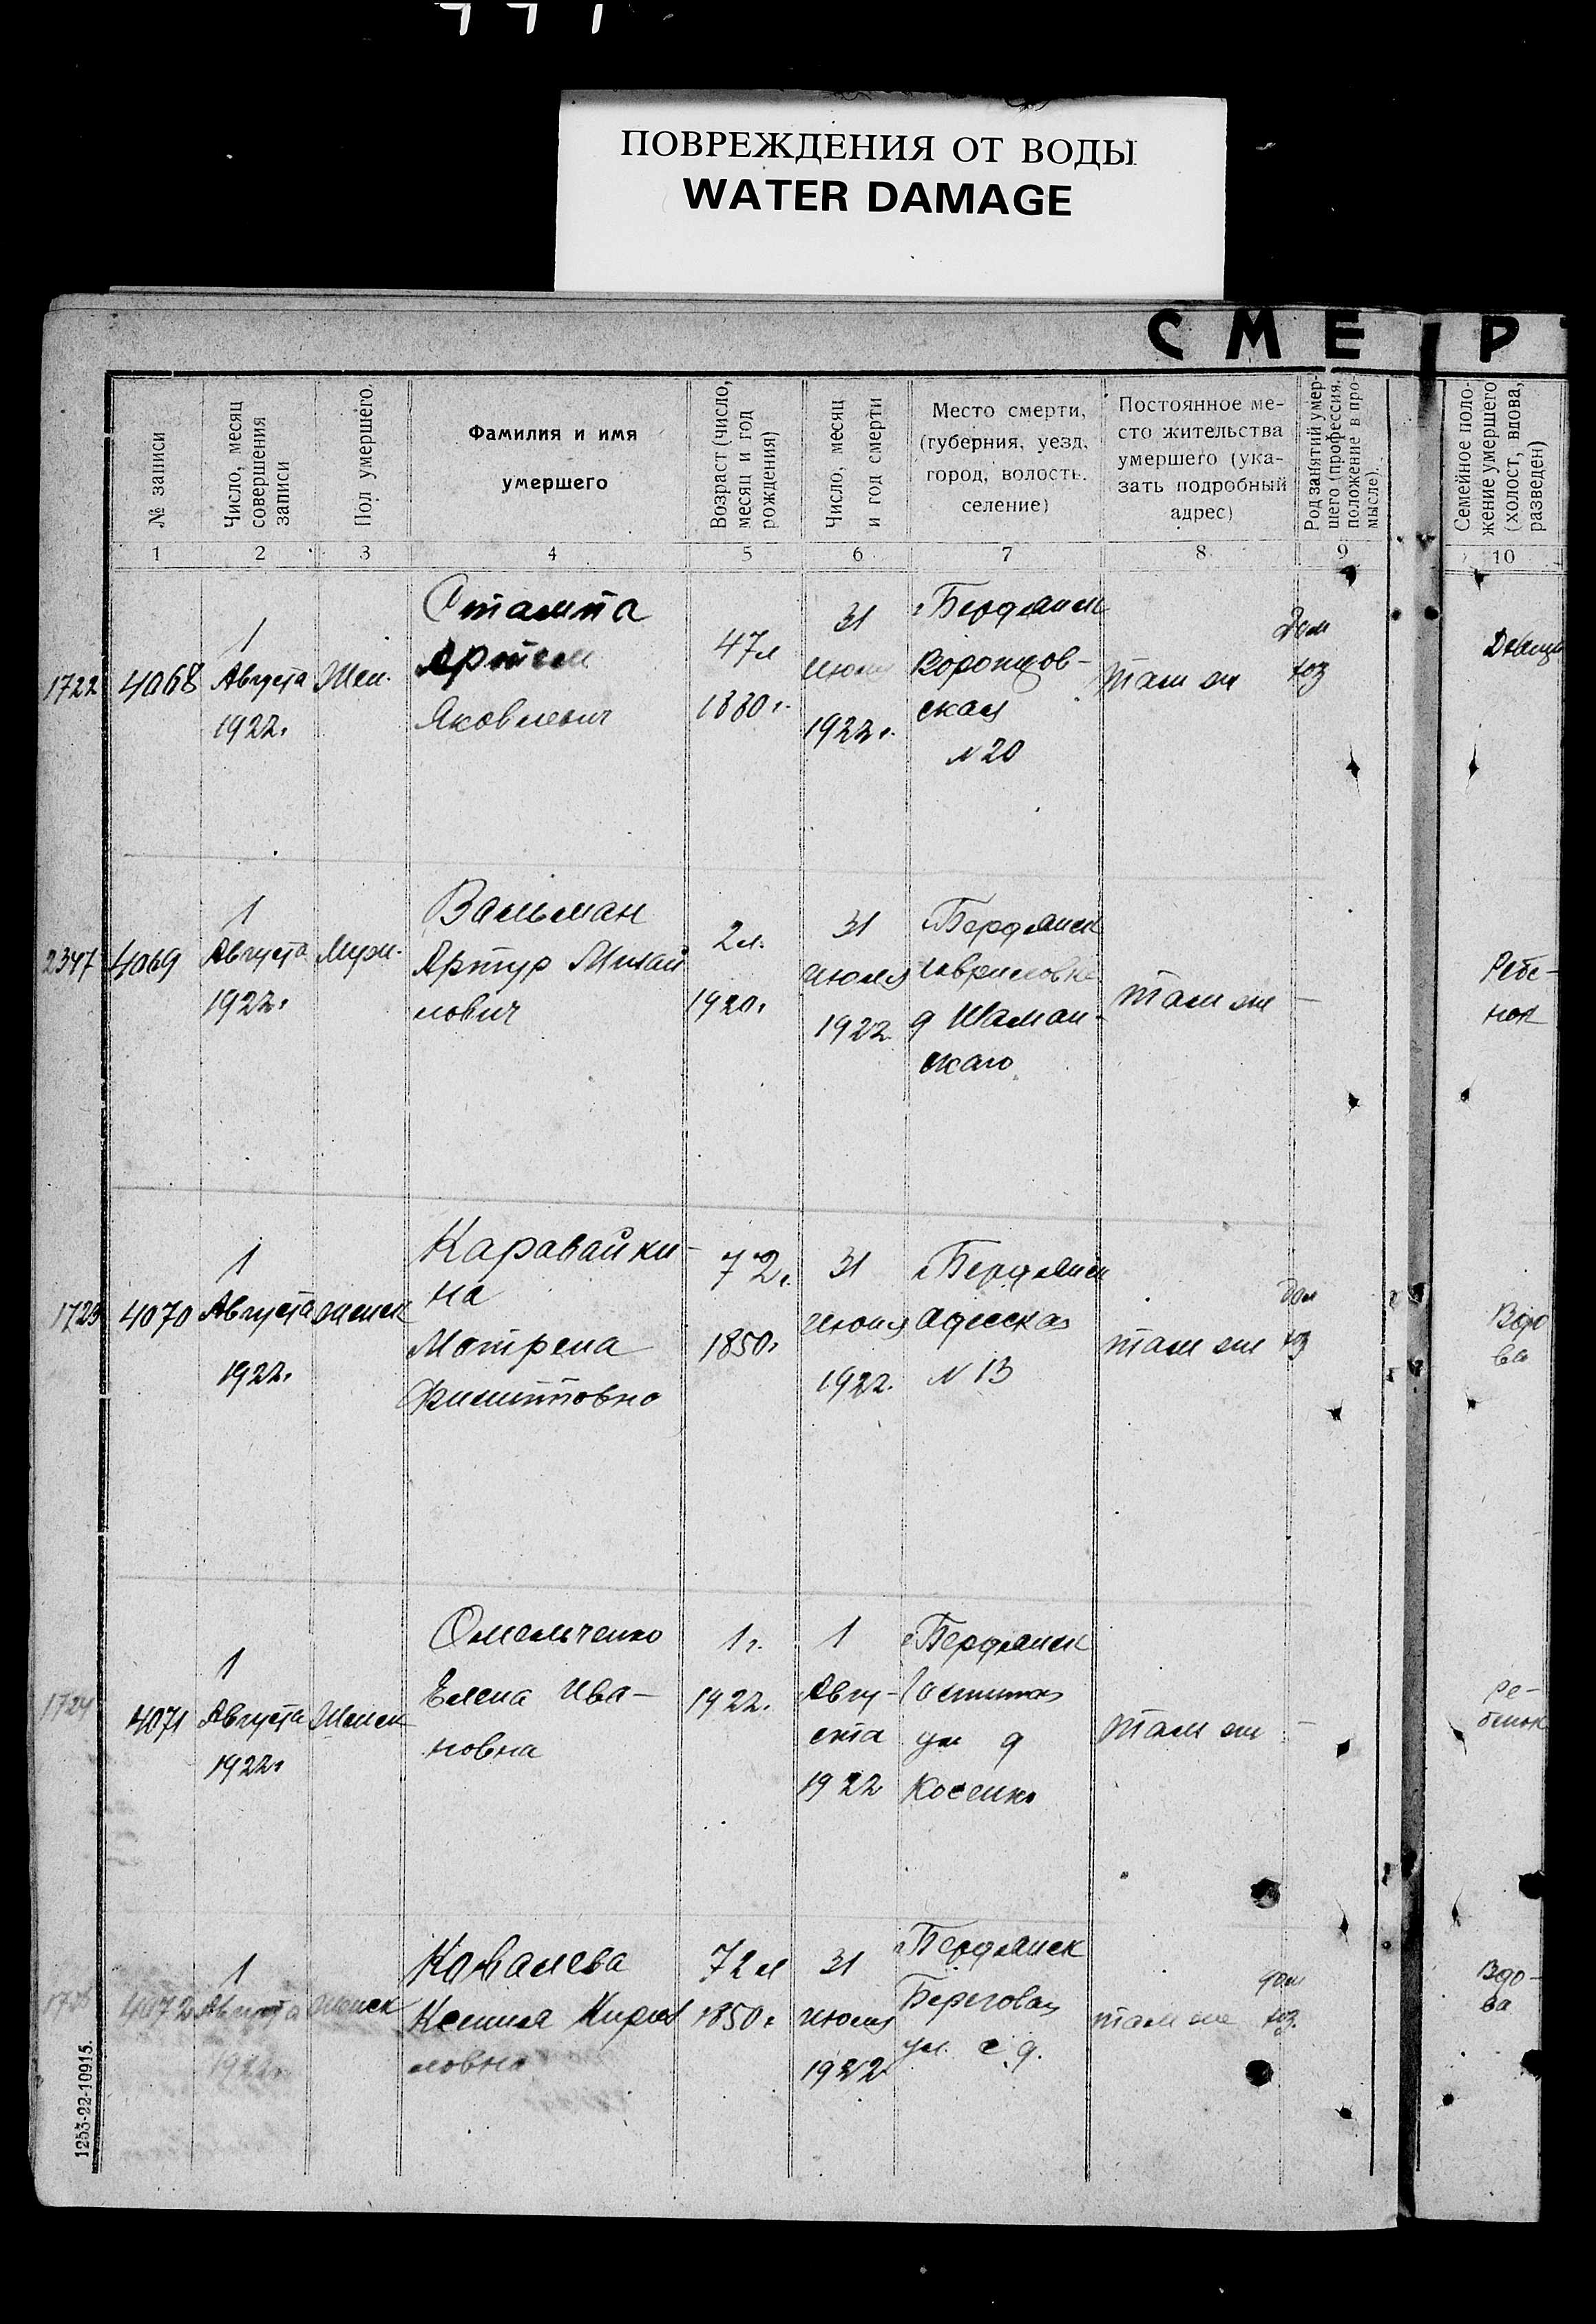 ПОВРЕЖДЕНИЯ ОТ ВОДЫ
WATER DAMAGE
СМЕР
№ записи
Число, месяц
совершения
записи
Пол умершего.
Фамилия и имя
умершего
Возраст (число,
месяц и год
рождения)
Число, месяц
и год смерти
Место смерти,
(губерния, уезд,
город, волость,
селение)
Постоянное ме-
сто жительства
умершего (ука-
зать подробный
адрес)
Род занятий умер-
шего (профессия,
положение в про-
мысле).
Семейное поло-
жение умершего
(холост, вдова,
разведен)
1 2 3 4 5 6 7 8 9 10
1722
4068
1
Августа
1922г.
Жен.
Стампа
Яковлевич
47л
1880г.
31
июля
1922г.
г Бердянск
Воронцов-
ская
№ 20
там же
Дом
хоз
2347
4069
1
Августа
1922г.
Муж.
Вальман
Артур Михай
лович
2л.
1920г.
31
июля
1922
г Бердянск
д Шаман-
скаго
там же
—
Ребе-
нок
1723
4070
1
Августа
1922г.
женск
Каравайки-
на
Мотрена
Филипповна
72г.
1850г.
31
июля
1922г.
г Бердянск
Адесская
№ 13
там же
дом
хоз
Вдо
ва
1724
4071
1
Августа
1922г
Женск
Омельченко
Елена Ива-
новна
1г.
1922г.
1
Авгу-
ста
1922
г Бердянск
ул д
Косенко
там же
—
ре-
бенок
4072
1
Августа
1922г
женск
Ковалева
Ксения Кирил
ловна
72л
1850г
31
июля
1922
г Бердянск
Береговая
ул. с. д.
там же
дом
хоз.
Вдо-
ва
1253-22-10915.